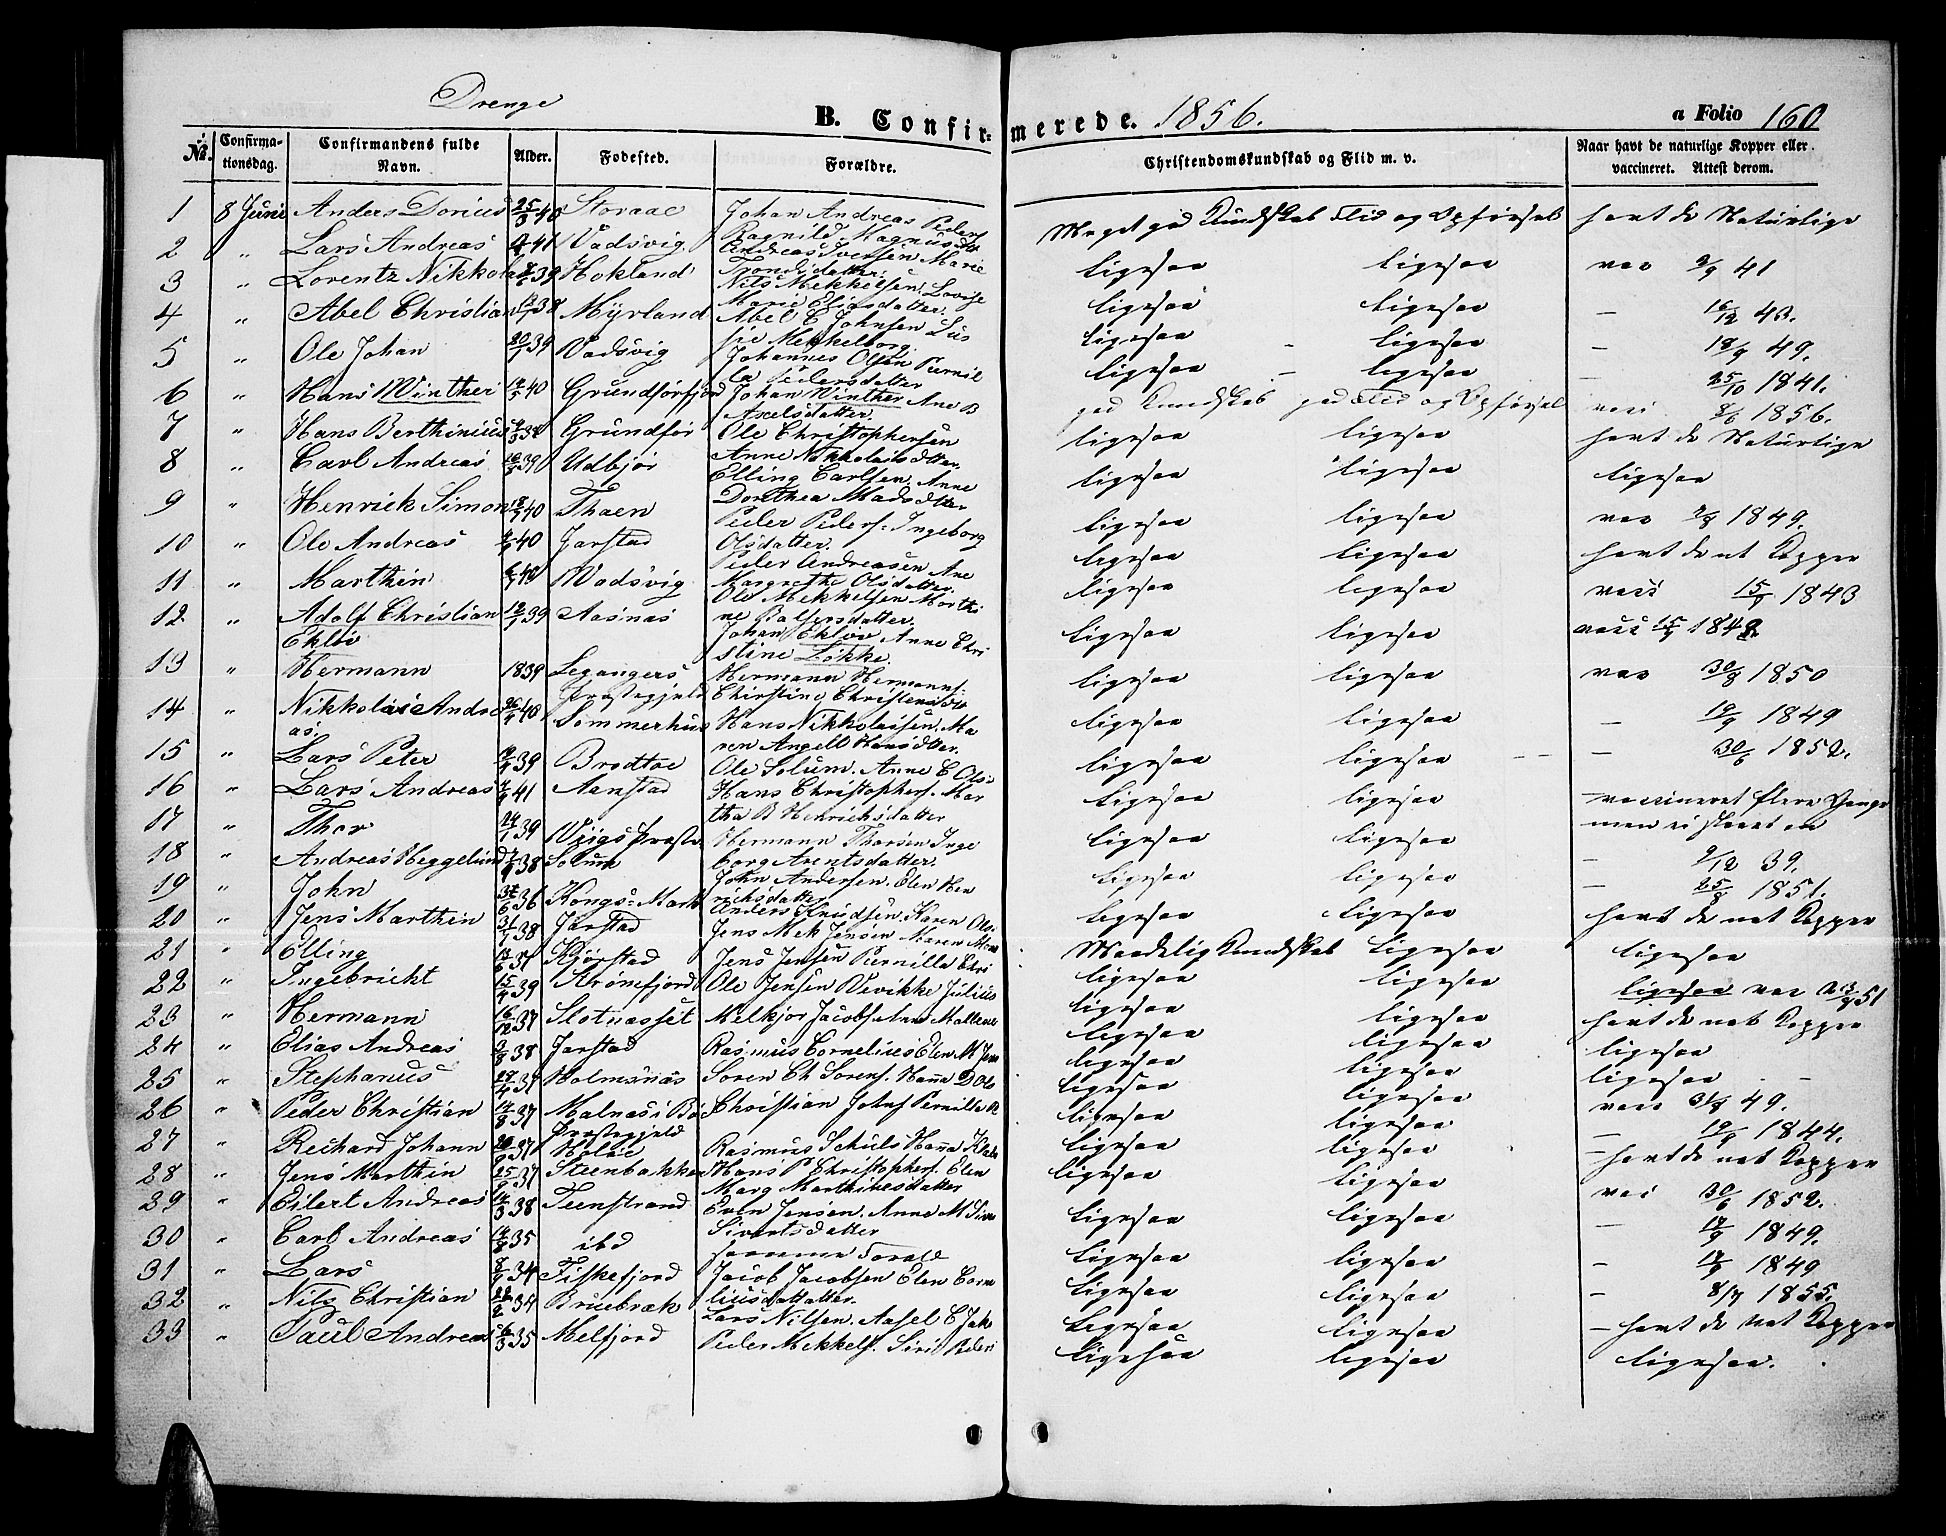 Drenge
B. Confirmerede. 1856.
a Folio 160
No. Confirmationsdag. Confirmandens fulde Navn. Alder. Fødested. Forældre. Christendomskundskab og Flid m. v. Naar havt de naturlige Kopper eller vaccineret. Attest derom.
1 8 Juni Anders Dorius 40 Storaae Johan Andreas Peders Ragnild Magnusdtr Meget god Kundskab Flid og Opførsel havt de Naturlige
2 " Lars Andreas 41 Vadsvig Andreas Iversen Marie Trondsdatter. ligesaa ligesaa vac 9/9 41
3 " Lorentz Nikkola 39 Hokland Nils Mekkelsen, Lovise Marie Eliasdatter. ligesaa ligesaa – 16/12 43.
4 " Abel Christian 38 Myrland Abel C Johnsen Lus sie Mekkelborg. ligesaa ligesaa – 18/9 49.
5 " Ole Johan 20/7 39 Vadsvig Johannes Olsen Pernil la Pedersdatter ligesaa ligesaa – 25/10 1841.
6 " Hans Winther 40 Grundførfjord Johan Winther Ane B Axelsdatter. god Kundskab god Flid og Opførsel vacc 8/6 1856.
7 " Hans Berthinius Grundfør Ole Christophersen Anne Nikkolaisdtter. ligesaa ligesaa havt de Naturlige
8 " Carl Andreas 39 Udbjør Elling Carlsen, Anne Dorthea Madsdtter ligesaa ligesaa ligesaa
9 " Henrick Simon 18/9 40 Thaen Peder Peders. Ingeborg Olsdatter. ligesaa ligesaa vac 1849.
10 " Ole Andreas 40 Jarstad Peder Andreasen Ane Margrethe Olsdatter. ligesaa ligesaa havt de nt Kopper
11 " Marthin Vadsvig Ole Mekkelsen Marthi ne Balsersdatter. ligesaa ligesaa vacc 15/9 1843
12 " Adolf Christian Ekløv 39 Aasnas Johan Ekløv, Anne Chri stine Løkke. ligesaa ligesaa vacc 15/9 1849
13 " Hermann 1839 Legangers Præstegjeld Hermann Hermanns. Christine Christensdtr ligesaa ligesaa vac 30/8 1850
14 " Nikkolai Andre as. 40 Sommerhus Hans Nikkolaisen. Ma ren Angell Hansdtter. ligesaa ligesaa – 19/9 1849
15 " Lars Peter 39 Brodtøe Ole Solum. Anne C Ols: ligesaa ligesaa – 30/6 1852.
16 " Lars Andreas 41 Aanstad Hans Christophers. Mar tha B Henrichsdatter ligesaa ligesaa – vaccineret flere Gange
17 " Thor 39 Vigs Præste Hermann Thorsen Inge borg Arentsdatter. ligesaa ligesaa men ei slaaet an
18 " Andreas Heggelund 38 Solum John Andersen. Elen Hen richsdatter ligesaa ligesaa – 9/12 39.
19 " John 36 Kongs-Mark Anders Knudsen, Karen Ols: ligesaa ligesaa – 25/8 1851.
20 " Jens Marthin 31/7 38 Jarstad Jens Mek Jensen Maren ligesaa ligesaa havt de nat Kopper
21 " Elling 37 Kjørstad Jens Jensen Pernilla Chri Maadelig Kundskab ligesaa ligesaa
22 " Ingebricht 15/4 39 Strømfjord Ole Jensen Vivikke Julius ligesaa ligesaa ligesaa vac 51
23 " Hermann 16/12 37 Slotnasset Melkjor Jacobs Ane Mallene ligesaa ligesaa havt de nat Kopper
24 " Elias Andreas 3/8 38 Jarstad Rasmus Cornelius Elen M Jens ligesaa ligesaa ligesaa
25 " Stephanus 37 Holmsnæs Soren Ch Sorens. Hanna D Ols ligesaa ligesaa ligesaa
26 " Peder Christian 14/8 37 Malnas i Bø Præstegjeld Christian Johns Pernilla ligesaa ligesaa vacc 49.
27 " Reichard Johann 37 Holde Rasmus Schuls Hanna ligesaa ligesaa – 19/9 1844.
28 " Jens Marthin 25/9 37 Steenbakken Hans P. Christophers. Elen Marg Marthinesdatter ligesaa ligesaa – havt de nat Kopper
29 " Eilert Andreas 38 Teenstrand Even Jensen. Anne M Sive Sivertsdatter ligesaa ligesaa vac 30/6 1852.
30 " Carl Andreas 35 ibd samme Foræld ligesaa ligesaa – 1849.
31 " Lars 34 Fiskefjord Jacob Jacobsen Elen Corne liusdattatter. ligesaa ligesaa – 1849
32 " Nils Christian 34 Bruebræk Lars Nilsen. Aasel C Jak ligesaa ligesaa – 8/7 1855.
33 " Paul Andreas 35 Melfjord Peder Mekkels. Siri Peders ligesaa ligesaa – havt de nat Kopper
ligesaa ligesaa ligesaa.